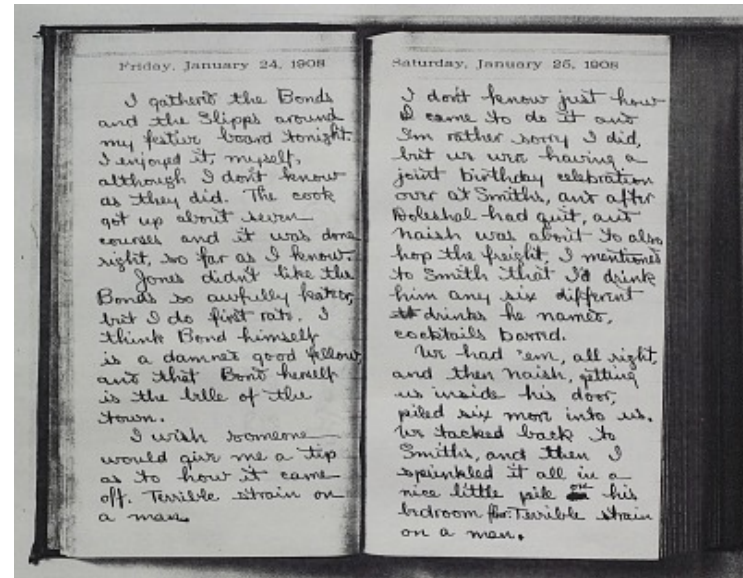 Friday, January 24, 1908
I gathered the Bonds
and the Slipps around
my festive board tonight.
I enjoyed it, myself,
although I don't know
as they did. The cook
got up about seven
courses and it was done
right, so far as I know.
Jones didn't like the
Bonds so awfully
but I do first rate. I
think Bond himself
is a damned good fellow
and that Bond herself
is the belle of the
town.
I wish someone
would give me a tip
as to how it came
off. Terrible strain on
a man.
Saturday, January 25, 1908
I don't know just how
I came to do it and
I'm rather sorry I did,
but we were having a
joint birthday celebration
over at Smiths, and after
Doleshal had quit, and
Naish was about to also
hop the freight, I mentioned
to Smith that I'd drink
him any six different
drinks he named,
cocktails barred.
We had 'em, all right,
and then Naish, getting
us inside his door,
piled six more into us.
We tacked back to
Smiths, and then I
sprinkled it all in a
nice little pile on his
bedroom floor. Terrible strain
on a man.